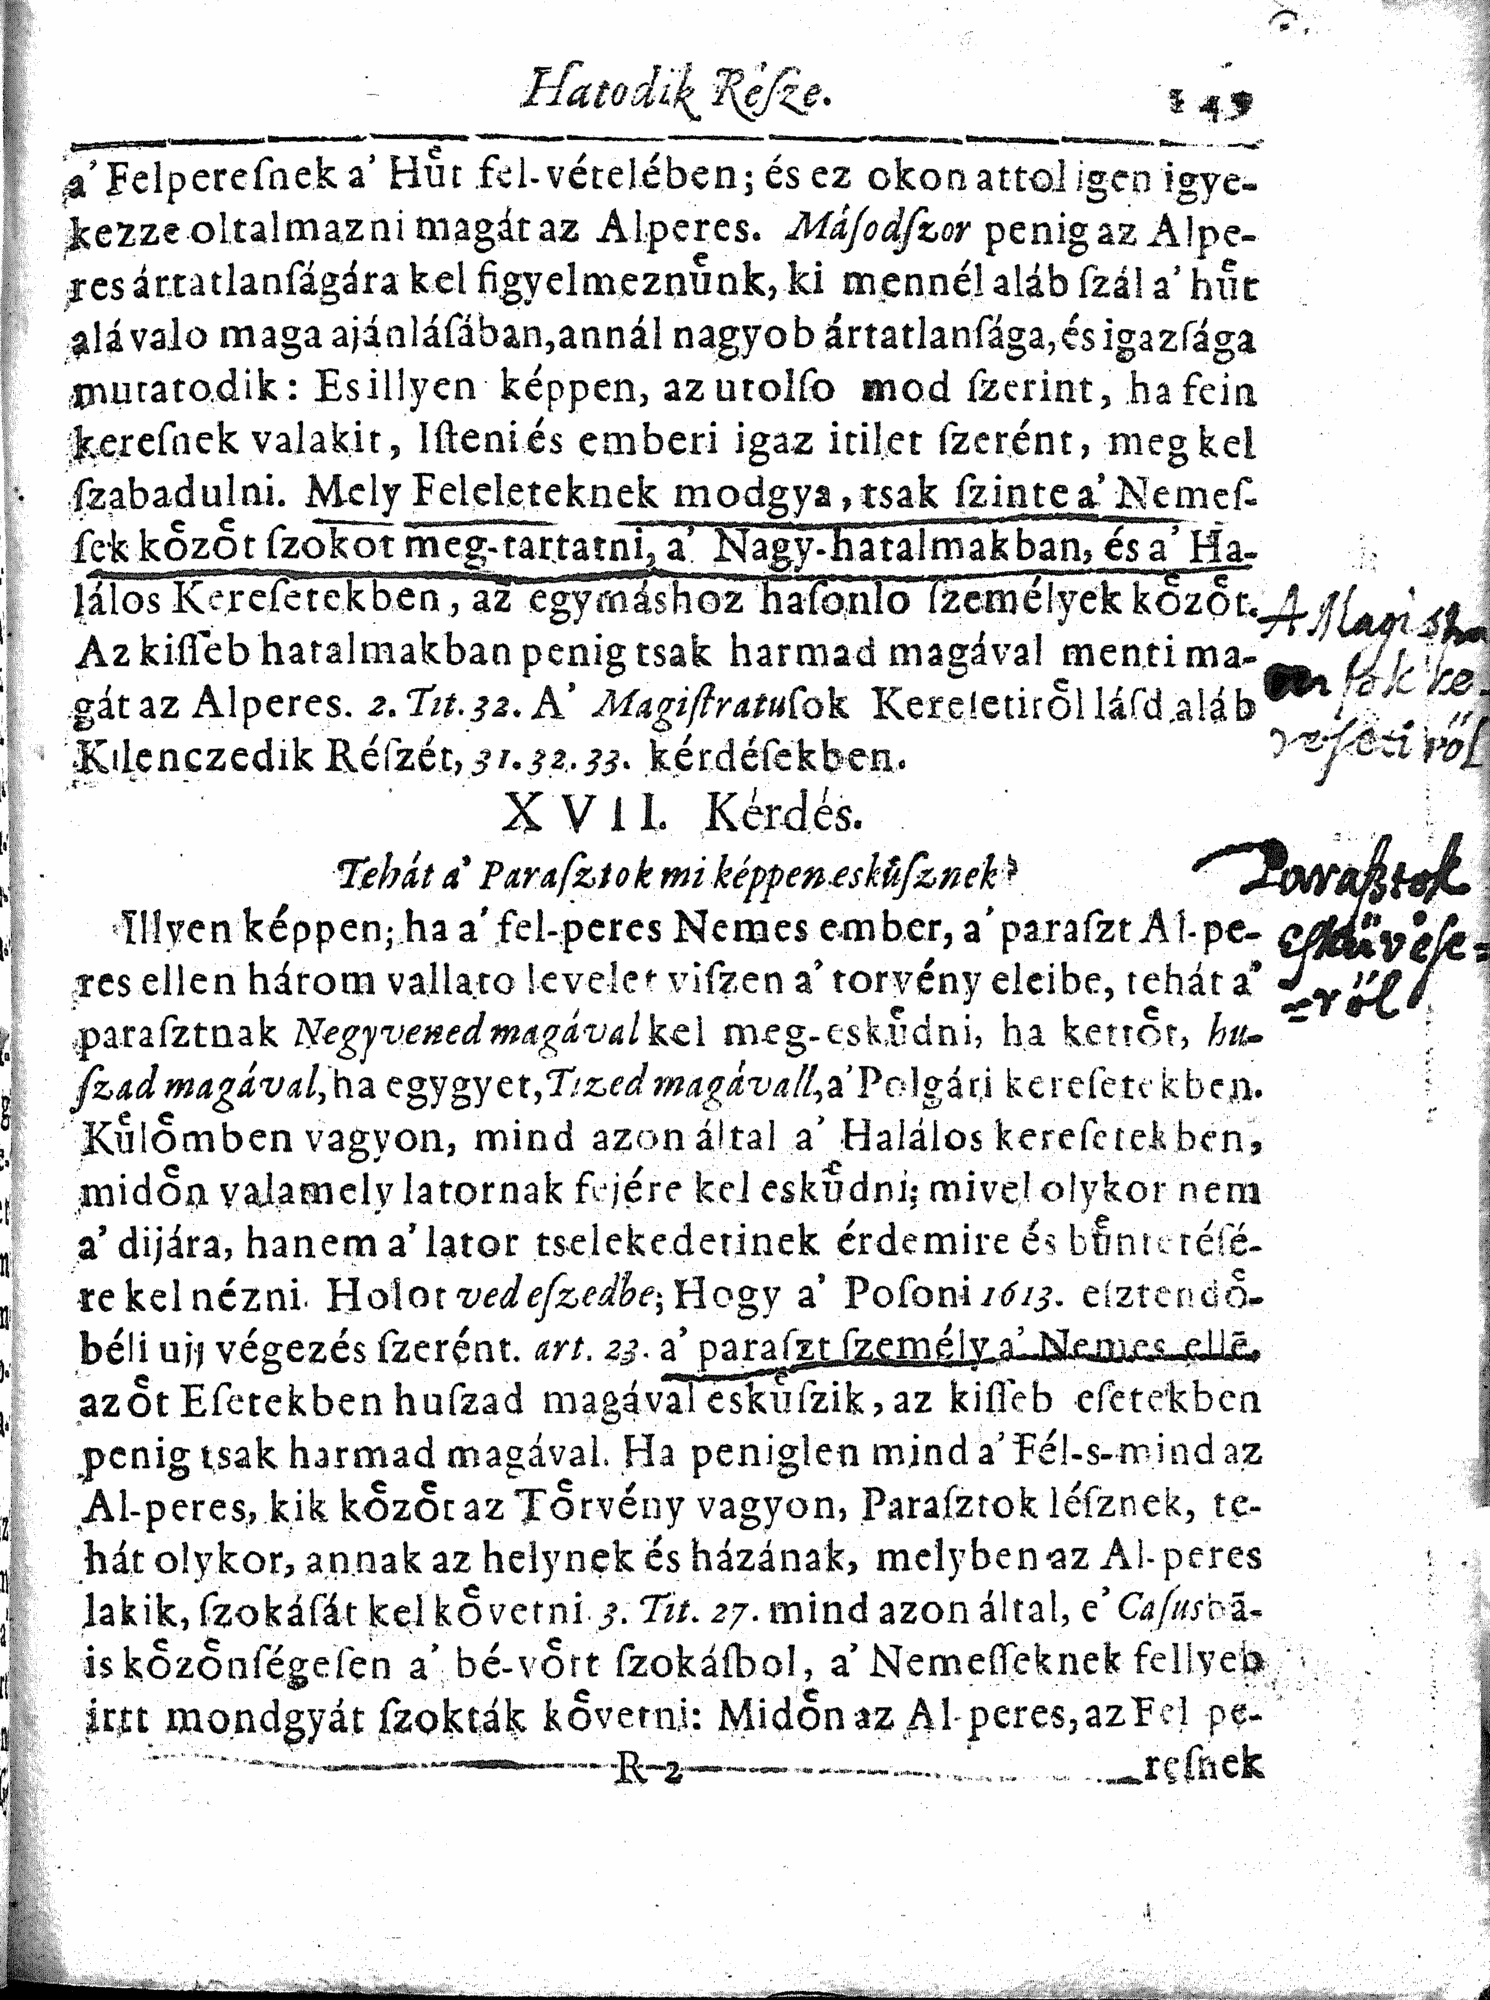 Hatodik Réſze. 149
a' Felpereſnek a' Huͤt fel-vételében; és ez okon attol igen igye-
kezze oltalmazni magát az Alperes. Máſodſzor penig az Alpe-
res ártatlanſágára kel figyelmeznuͤnk, ki mennél aláb ſzál a' huͤt
alá valo maga ajánláſában, annál nagyob ártatlanſága, és igazſága
mutatodik: Es illyen képpen, az utolſo mod ſzerint, ha fein
kereſnek valakit, Iſteni és emberi igaz itilet ſzerént, meg kel
ſzabadulni. Mely Feleleteknek modgya, tsak ſzinte a' Nemeſ-
ſek koͤzoͤt ſzokot meg-tartatni, a' Nagy-hatalmakban, és a' Ha-
lálos Kereſetekben, az egymáshoz haſonlo ſzemélyek koͤzoͤt.
Az kiſſeb hatalmakban penig tsak harmad magával menti ma-
gát az Alperes. 2. Tit. 32. A' Magiſtratuſok Kereſetiroͤl láſd aláb
Kilenczedik Réſzét, 31. 32. 33. kérdéſekben.
A Magistra
ſok ke-
reſeti ről
XVII. Kérdés.
Tehát a' Paraſztok mi képpen eskuͤſznek?
Paraſztok
esküvéſe-
-ről
Illyen képpen; ha a' fel-peres Nemes ember, a' paraſzt Al-pe-
res ellen három vallato levelet viſzen a' torvény eleibe, tehát a'
paraſztnak Negyvened magával kel meg-eskuͤdni, ha kettoͤt, hu-
ſzad magával, ha egygyet, Tized magávall, a' Polgári kereſetekben.
Kuͤloͤmben vagyon, mind azon által a' Halálos kereſetekben,
midoͤn valamely latornak fejére kel eskuͤdni; mivel olykor nem
a' dijára, hanem a' lator tselekedetinek érdemire és buͤntetéſé-
re kel nézni. Holot ved eſzedbe; Hogy a' Poſoni 1613. eſztendoͤ-
béli ujj végezés ſzerént. art. 23. a' paraſzt ſzemély a' Nemes ellē,
az oͤt Eſetekben huſzad magával eskuͤſzik, az kiſſeb eſetekben
penig tsak harmad magával. Ha peniglen mind a' Fél-s-mind az
Al-peres, kik koͤzoͤt az Toͤrvény vagyon, Paraſztok léſznek, te-
hát olykor, annak az helynek és házának, melyben az Al-peres
lakik, ſzokáſát kel koͤvetni. 3. Tit. 27. mind azon által, e' Caſusbā-
is koͤzoͤnſégeſen a' bé-voͤtt ſzokáſbol, a' Nemeſſeknek fellyeb
irtt mondgyát ſzokták koͤvetni: Midoͤn az Al-peres, az Fel pe-
R 2 reſnek